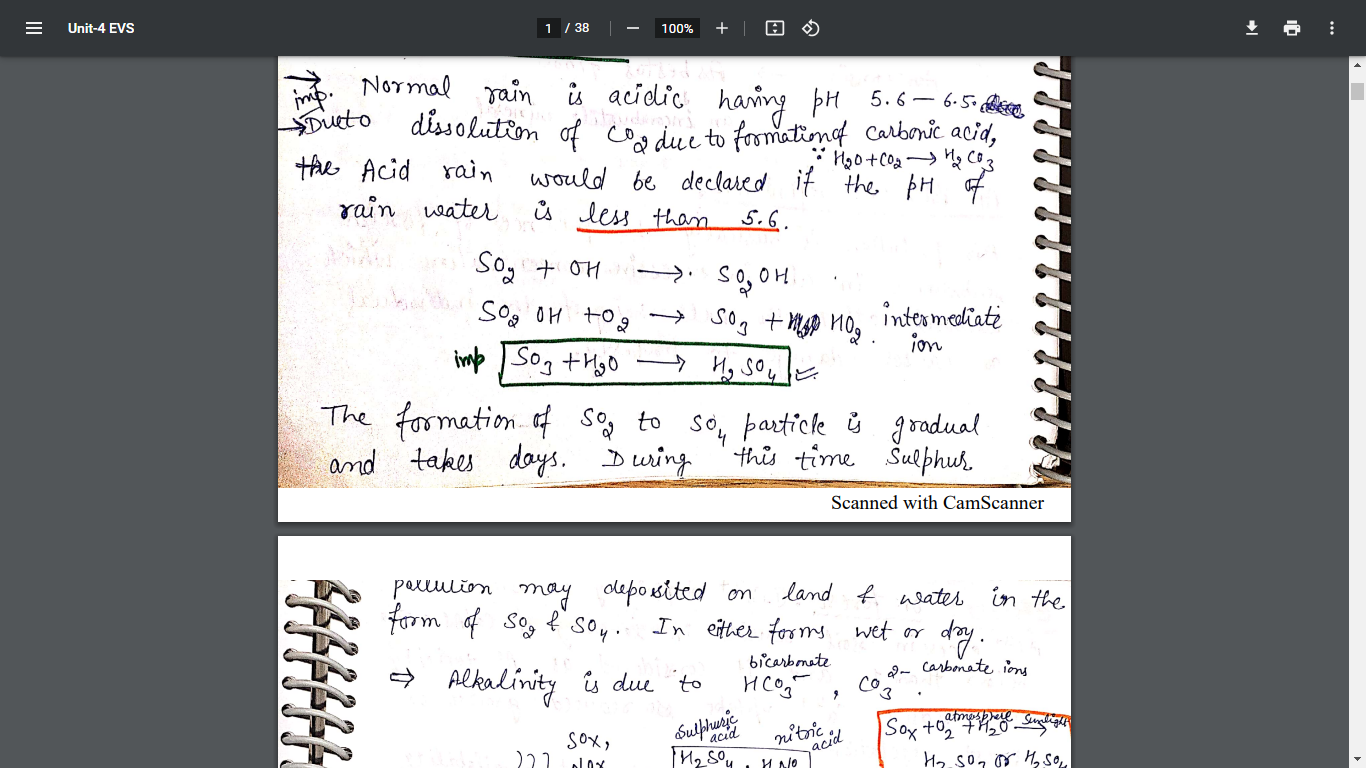 Unit-4 EVS
1 / 38
100%
imp. Normal rain is acidic having pH 5.6 – 6.5.
→ Due to dissolution of CO2 due to formation of carbonic acid,
∵ H2O + CO2 → H2CO3
the Acid rain would be declared if the pH of
rain water is less than 5.6.
SO2 + OH → SO2OH
SO2OH + O2 → SO3 + HO2. intermediate
ion
imp SO3 + H2O → H2SO4
The formation of SO2 to SO4 particle is gradual
and takes days. During this time Sulphur
Scanned with CamScanner
pollution may deposited on land & water in the
form of SO2 & SO4. In either forms wet or dry.
bicarbonate
⇒ Alkalinity is due to HCO3⁻, CO3²⁻ carbonate ions.
SOx,
Sulphuric acid
nitric acid
atmosphere sunlight
SOx + O2 + H2O →
H2SO4